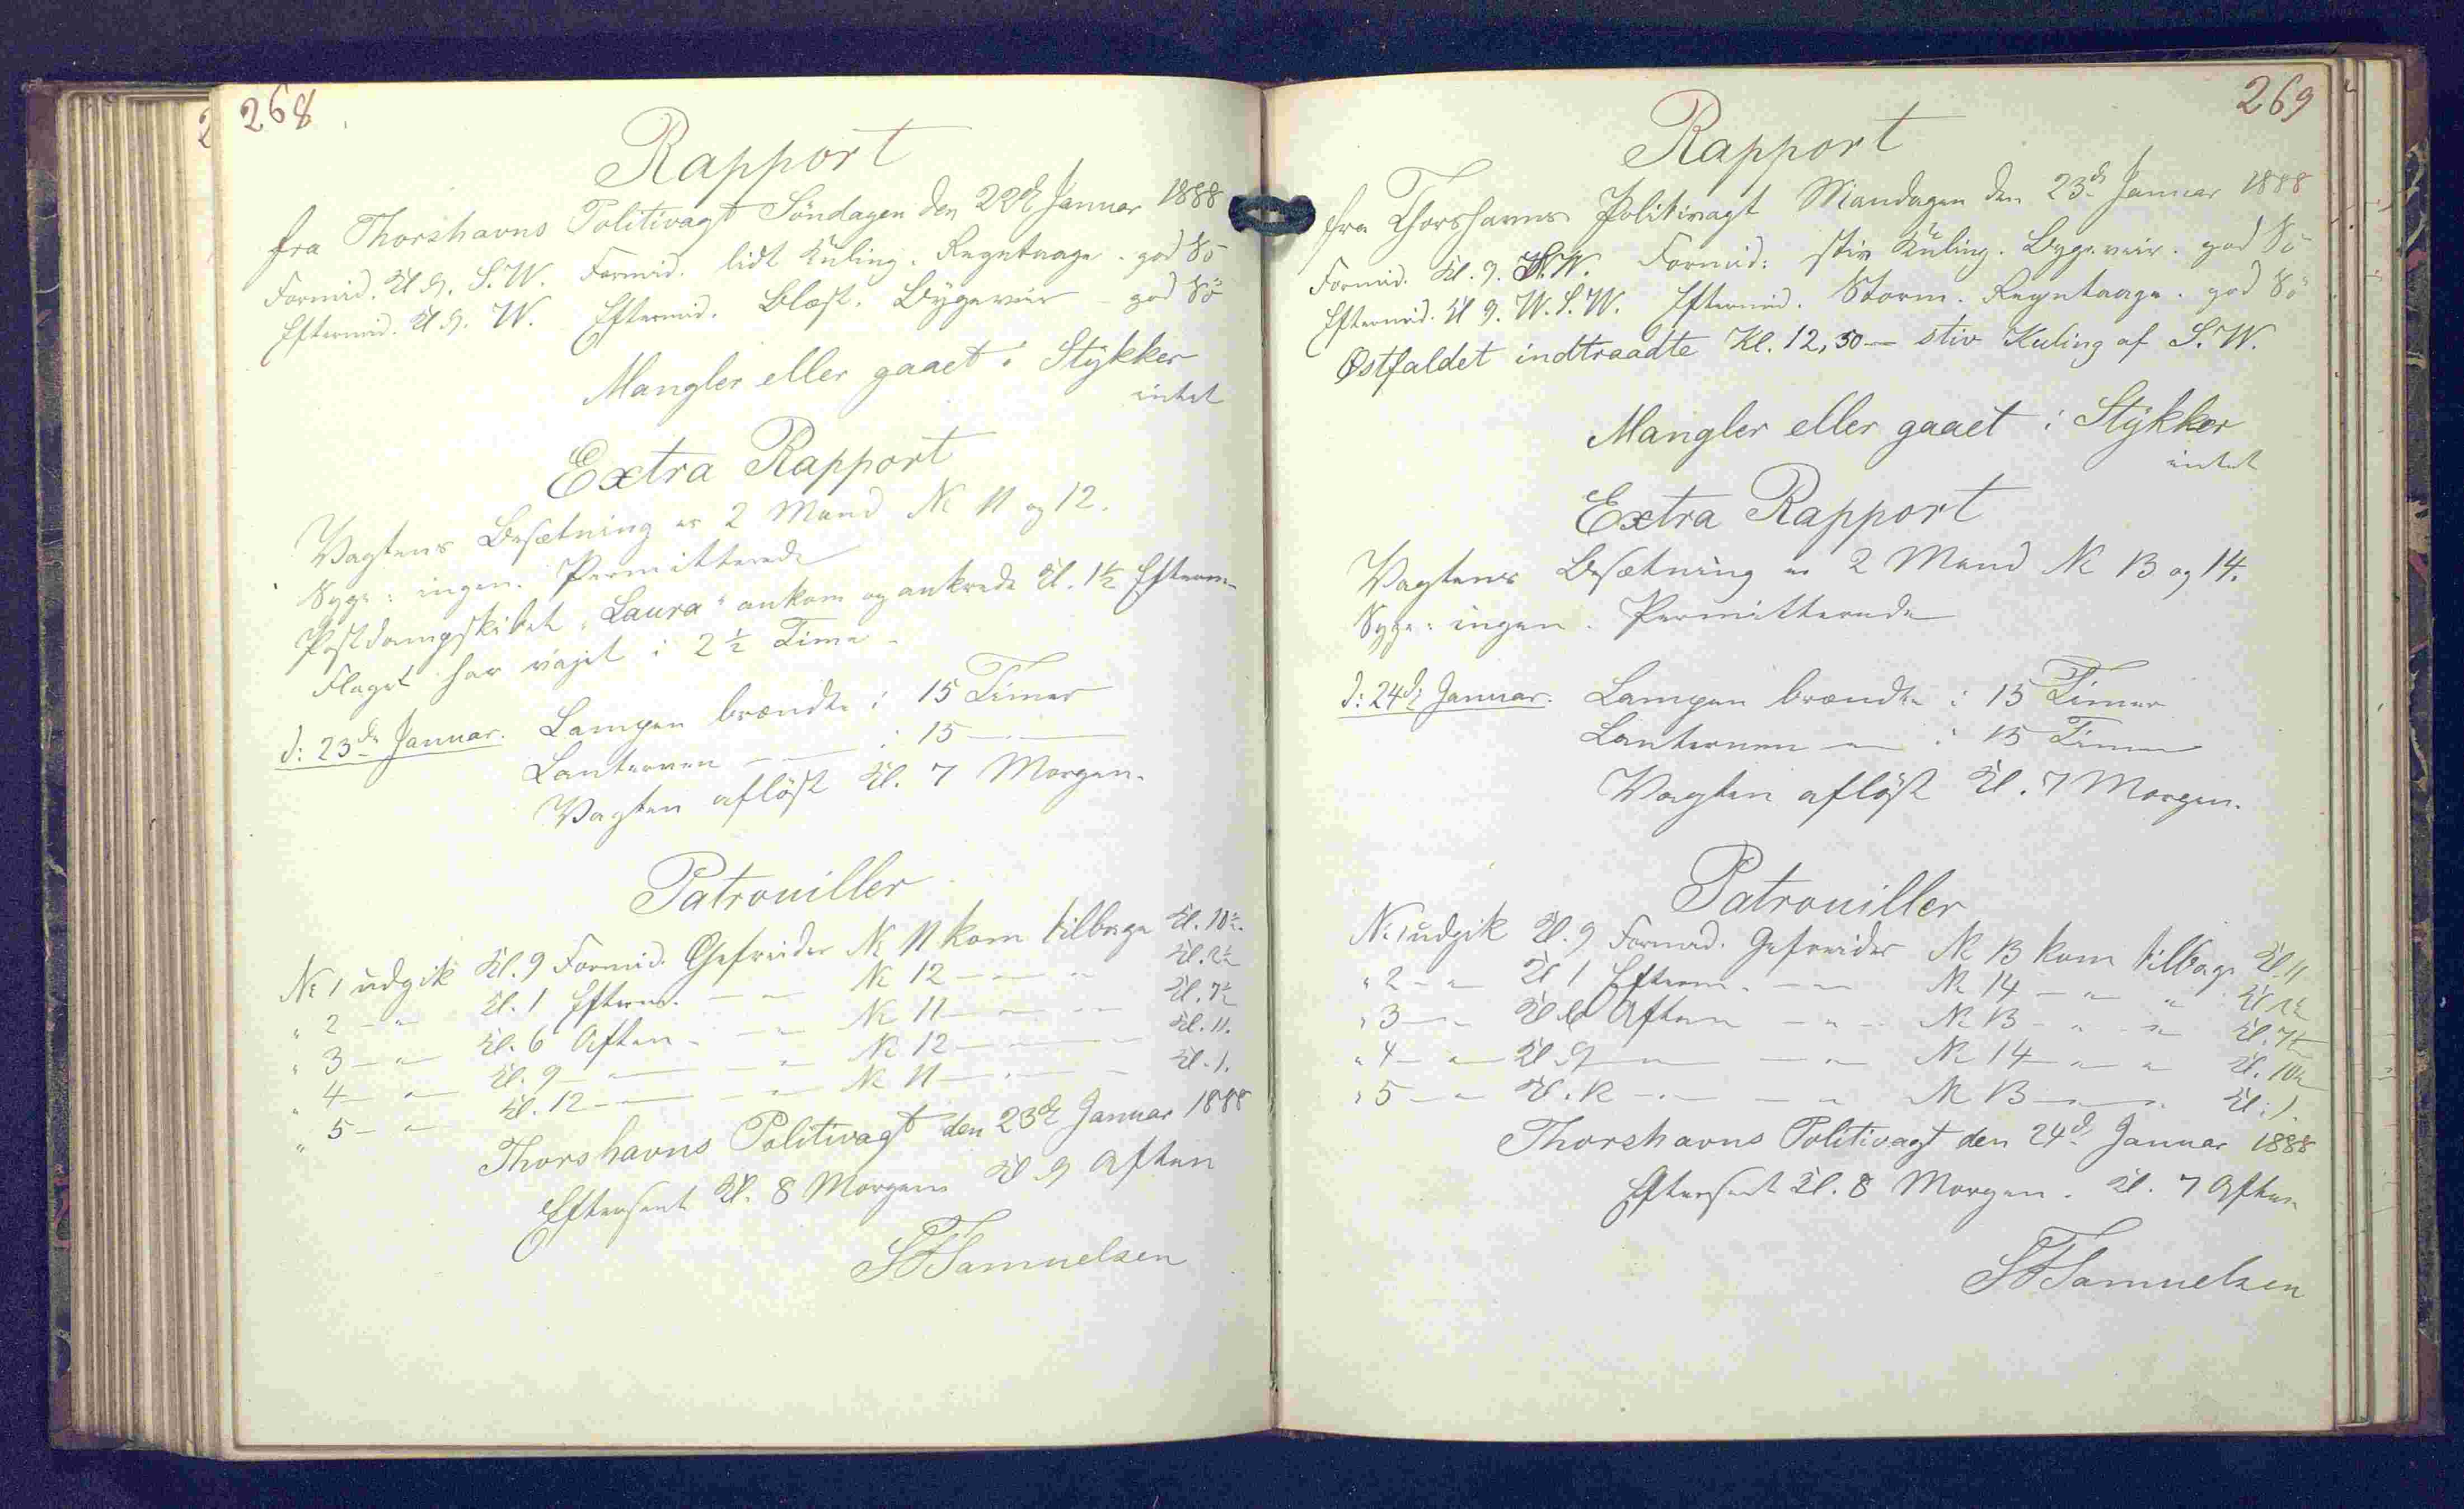 268
Rapport
fra Thorshavns Politivagt Söndagen den 22de Januar 1888
Formid. Kl. 9. S.W. Formid. lidt Kuling. Regntaage. god Sö
Eftermid. Kl. 9. W. Eftermid. Blæst. Bygeveir - god Sö
Mangler eller gaaet i Stÿkker
intet
Extra Rapport
Vagtens Besætning er 2 Mand No 11 og 12.
Syge: ingen. Permitterede
Postdampskibet "Laura" ankom og ankrede Kl. 1½ Efterm.
Flaget har vajet i 2½ Time -
d: 23de Januar. Lampen brændte i 15 Timer
Lanternen — — i 15 — —
Vagten aflöst Kl. 7 Morgen.
Patrouiller
No 1 udgik Kl. 9 Formid. Gefreider No 11 kom tilbage Kl. 10½.
" 2 - " - Kl. 1 Efterm. - " - No 12 - " - " Kl. 2½
" 3 - " - Kl. 6 Aften - " - No 11 - " - " Kl. 7½
" 4 - " - Kl. 9 - " - " - No 12 - " - " Kl. 11.
" 5 - " - Kl. 12 - " - " - No 11 - " - " Kl. 1.
Thorshavns Politivagt den 23de Januar 1888
Efterseet Kl. 8 Morgen Kl. 9 Aften
Samuelsen
269
Rapport
fra Thorshavns Politivagt Mandagen den 23de Januar 1888
Formid. Kl. 9. W. Formid: stiv Kuling. Bygeveir. god Sö
Eftermid. Kl 9. W.S.W. Eftermid. Storm. Regntaage. god Sö
Østfaldet indtraadte Kl. 12,30 — stiv Kuling af S.W.
Mangler eller gaaet i Stÿkker
intet
Extra Rapport
Vagtens Besætning er 2 Mand No 13 og 14.
Syge: ingen. Permitterede
d: 24de Januar. Lampen brændte i 15 Timer
Lanternen — " — i 15 Timer
Vagten aflöst Kl. 7 Morgen.
Patrouiller
No 1 udgik Kl. 9 Formid. Gefreider No 13 kom tilbage Kl 11
" 2 - " - Kl 1 Efterm. - " - No 14 - " - " Kl
" 3 - " - Kl 6 Aften - " - No 13 - " - " Kl. 7½
" 4 - " - Kl 9 - " - " - No 14 - " - " Kl. 10½
" 5 - " - Kl. 12 - " - " - No 13 - " - " Kl: 1.
Thorshavns Politivagt den 24de Januar 1888
Efterseet Kl. 8 Morgen. Kl. 7 Aften
Samuelsen